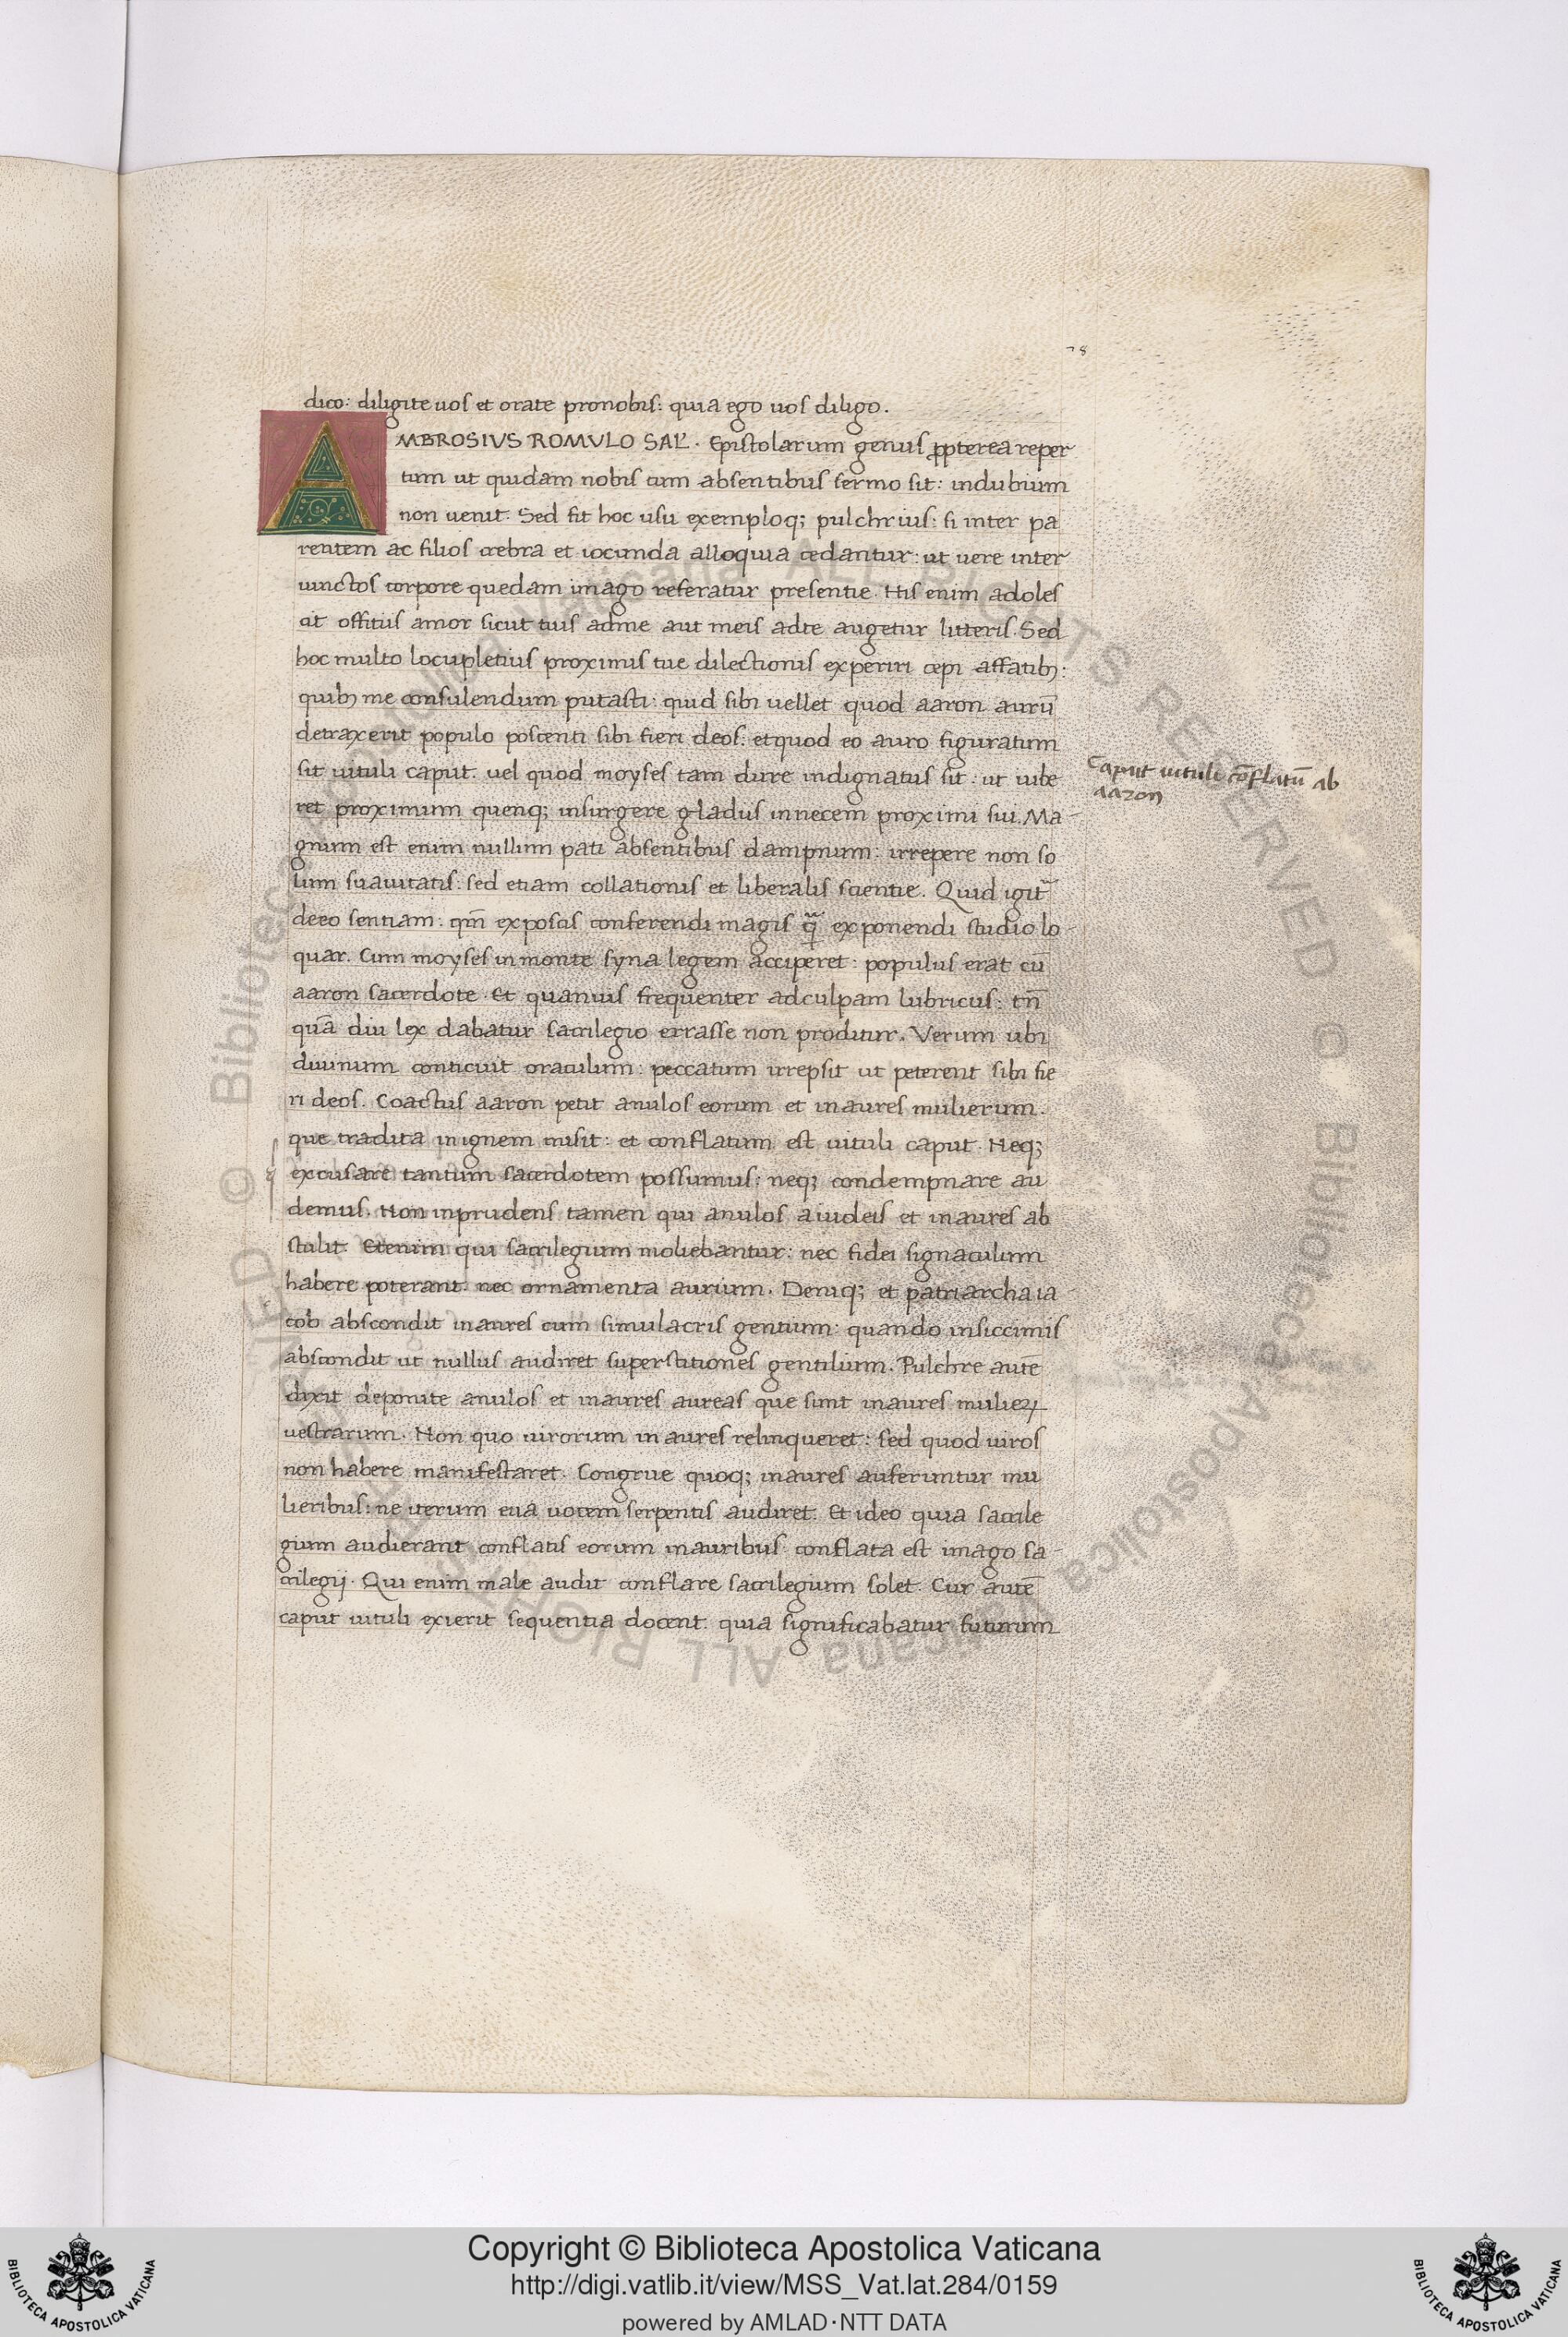 78
dico: diligite uos et orate pronobis: quia ego uos diligo.
AMBROSIVS ROMVLO SAL̄. Epistolarum genus ꝓpterea reper
tum ut quidam nobis cum absentibus sermo sit: indubium
non uenit. Sed fit hoc usu exemploq; pulchrius: si inter pa
rentem ac filios crebra et iocunda alloquia cedantur: ut uere inter
iunctos corpore quedam imago referatur presentie. His enim adoles
cit offitiis amor sicut tuis adme aut meis adte augetur litteris. Sed
hoc multo locupletius proximis tue dilectionis experiri cepi affatibꝫ:
quibꝫ me consulendum putasti: quid sibi uellet quod aaron aurū
detraxerit populo poscenti sibi fieri deos: etquod eo auro figuratum
sit uituli caput. uel quod moyses tam dure indignatus sit: ut iube
ret proximum quenq; insurgere gladiis innecem proximi sui. Ma
gnum est enim nullum pati absentibus dampnum: irrepere non so
lum suauitatis: sed etiam collationis et liberalis scientie. Quid igit᷑
deeo sentiam: qm̄ exposcis conferendi magis ꝙ̄ exponendi studio lo
quar. Cum moyses inmonte syna legem acciperet: populus erat cū
aaron sacerdote. Et quanuis frequenter adculpam lubricus: tn̄
quā diu lex dabatur sacrilegio errasse non proditur. Verum ubi
diuinum conticuit oraculum: peccatum irrepsit ut peterent sibi fie
ri deos. Coactus aaron petit anulos eorum et inaures mulierum.
que tradita inignem misit: et conflatum est uituli caput. Neq;
excusare tantum sacerdotem possumus: neq; condempnare au
demus. Non inprudens tamen qui anulos aiudeis et inaures ab
stulit. Etenim qui sacrilegium moliebantur: nec fidei signaculum
habere poterant nec ornamenta aurium. Deniq; et patriarcha ia
cob abscondit inaures cum simulacris gentium: quando insiccimis
abscondit ut nullus audiret superstitiones gentilium. Pulchre autē
dixit deponite anulos et inaures aureas que sunt inaures mulieꝝ
uestrarum. Non quo uirorum inaures relinqueret: sed quod uiros
non habere manifestaret. Congrue quoq; inaures auferuntur mu
lieribus: ne iterum eua uocem serpentis audiret. Et ideo quia sacrile
gium audierant conflatis eorum inauribus conflata est imago sa
crilegij. Qui enim male audit conflare sacrilegium solet. Cur autē
caput uituli exierit sequentia docent. quia significabatur futurum
Caput uituli cōflatū ab
aaron
Copyright © Biblioteca Apostolica Vaticana
http://digi.vatlib.it/view/MSS_Vat.lat.284/0159
powered by AMLAD·NTT DATA
BIBLIOTECA APOSTOLICA VATICANA
BIBLIOTECA APOSTOLICA VATICANA